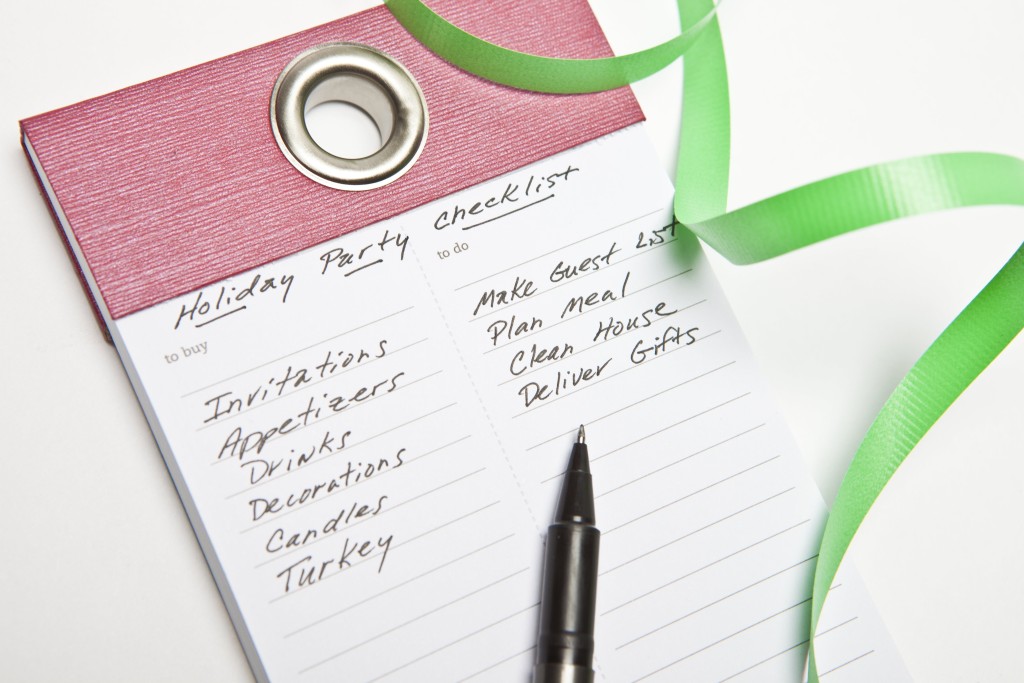 Holiday Party Checklist
to buy
Invitations
Appetizers
Drinks
Decorations
Candles
Turkey
to do
Make Guest List
Plan Meal
Clean House
Deliver Gifts